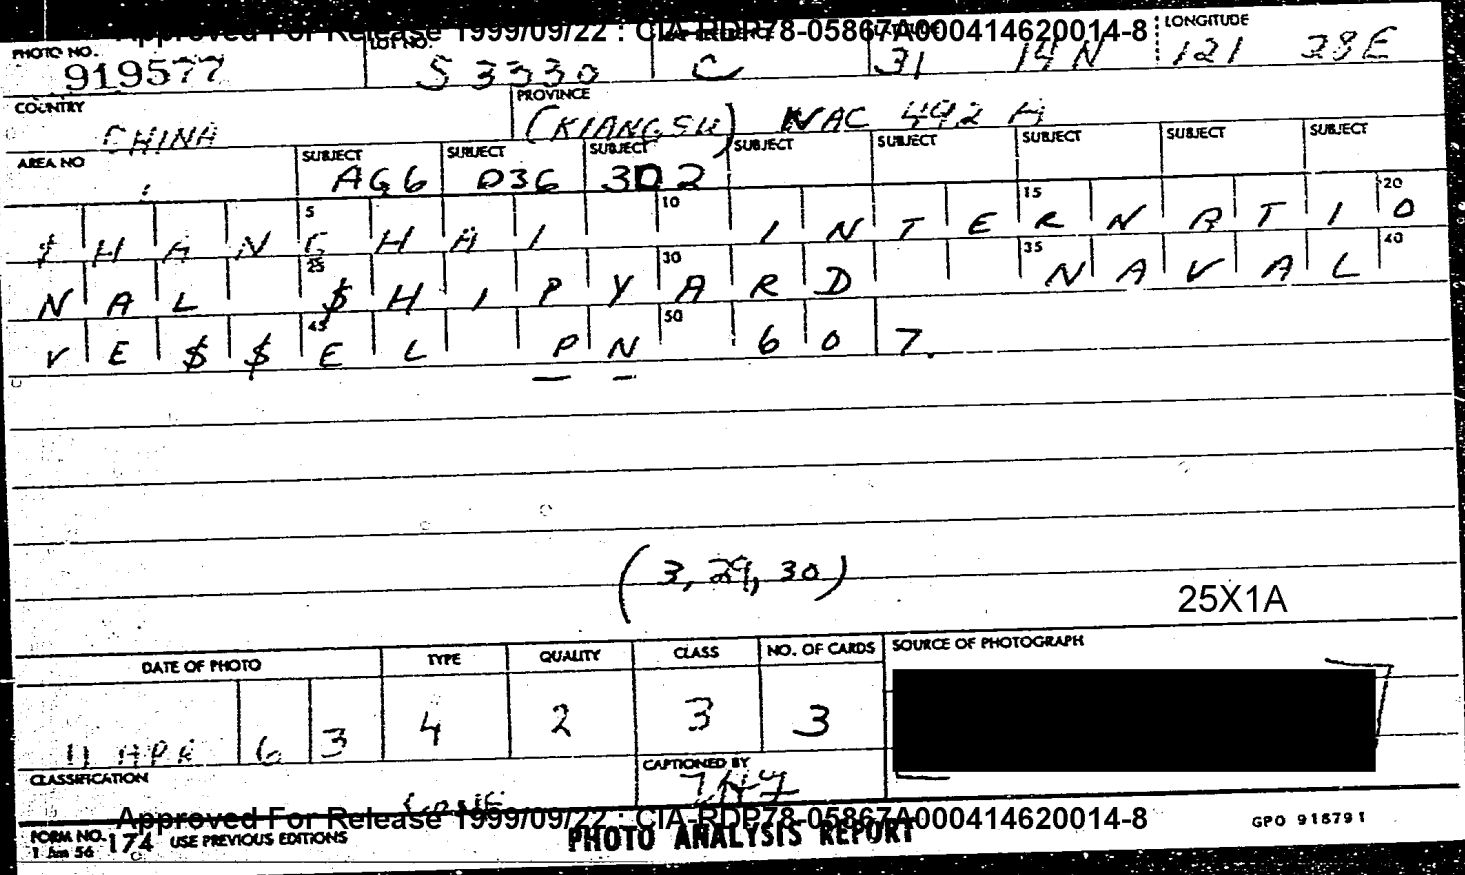 Approved For Release 1999/09/22 : CIA-RDP78-05867A000414620014-8
PHOTO NO. 919577 LOT NO. S 3330 C 31 14N LONGITUDE 121 28E
COUNTRY CHINA PROVINCE (KIANGSU) WAC 492 A
AREA NO SUBJECT AG6 SUBJECT D36 SUBJECT 3D2 SUBJECT SUBJECT SUBJECT SUBJECT SUBJECT
5 10 15 20
$HANGHAI INTERNATIO
25 30 35 40
NAL $HIPYARD NAVAL
45 50
VE$$EL PN 607.
(3, 29, 30)
25X1A
DATE OF PHOTO TYPE QUALITY CLASS NO. OF CARDS SOURCE OF PHOTOGRAPH
11 APR 63 4 2 3 3
CLASSIFICATION CONF CAPTIONED BY
Approved For Release 1999/09/22 : CIA-RDP78-05867A000414620014-8
FORM NO. 174 USE PREVIOUS EDITIONS PHOTO ANALYSIS REPORT GPO 918791
1 Jan 56